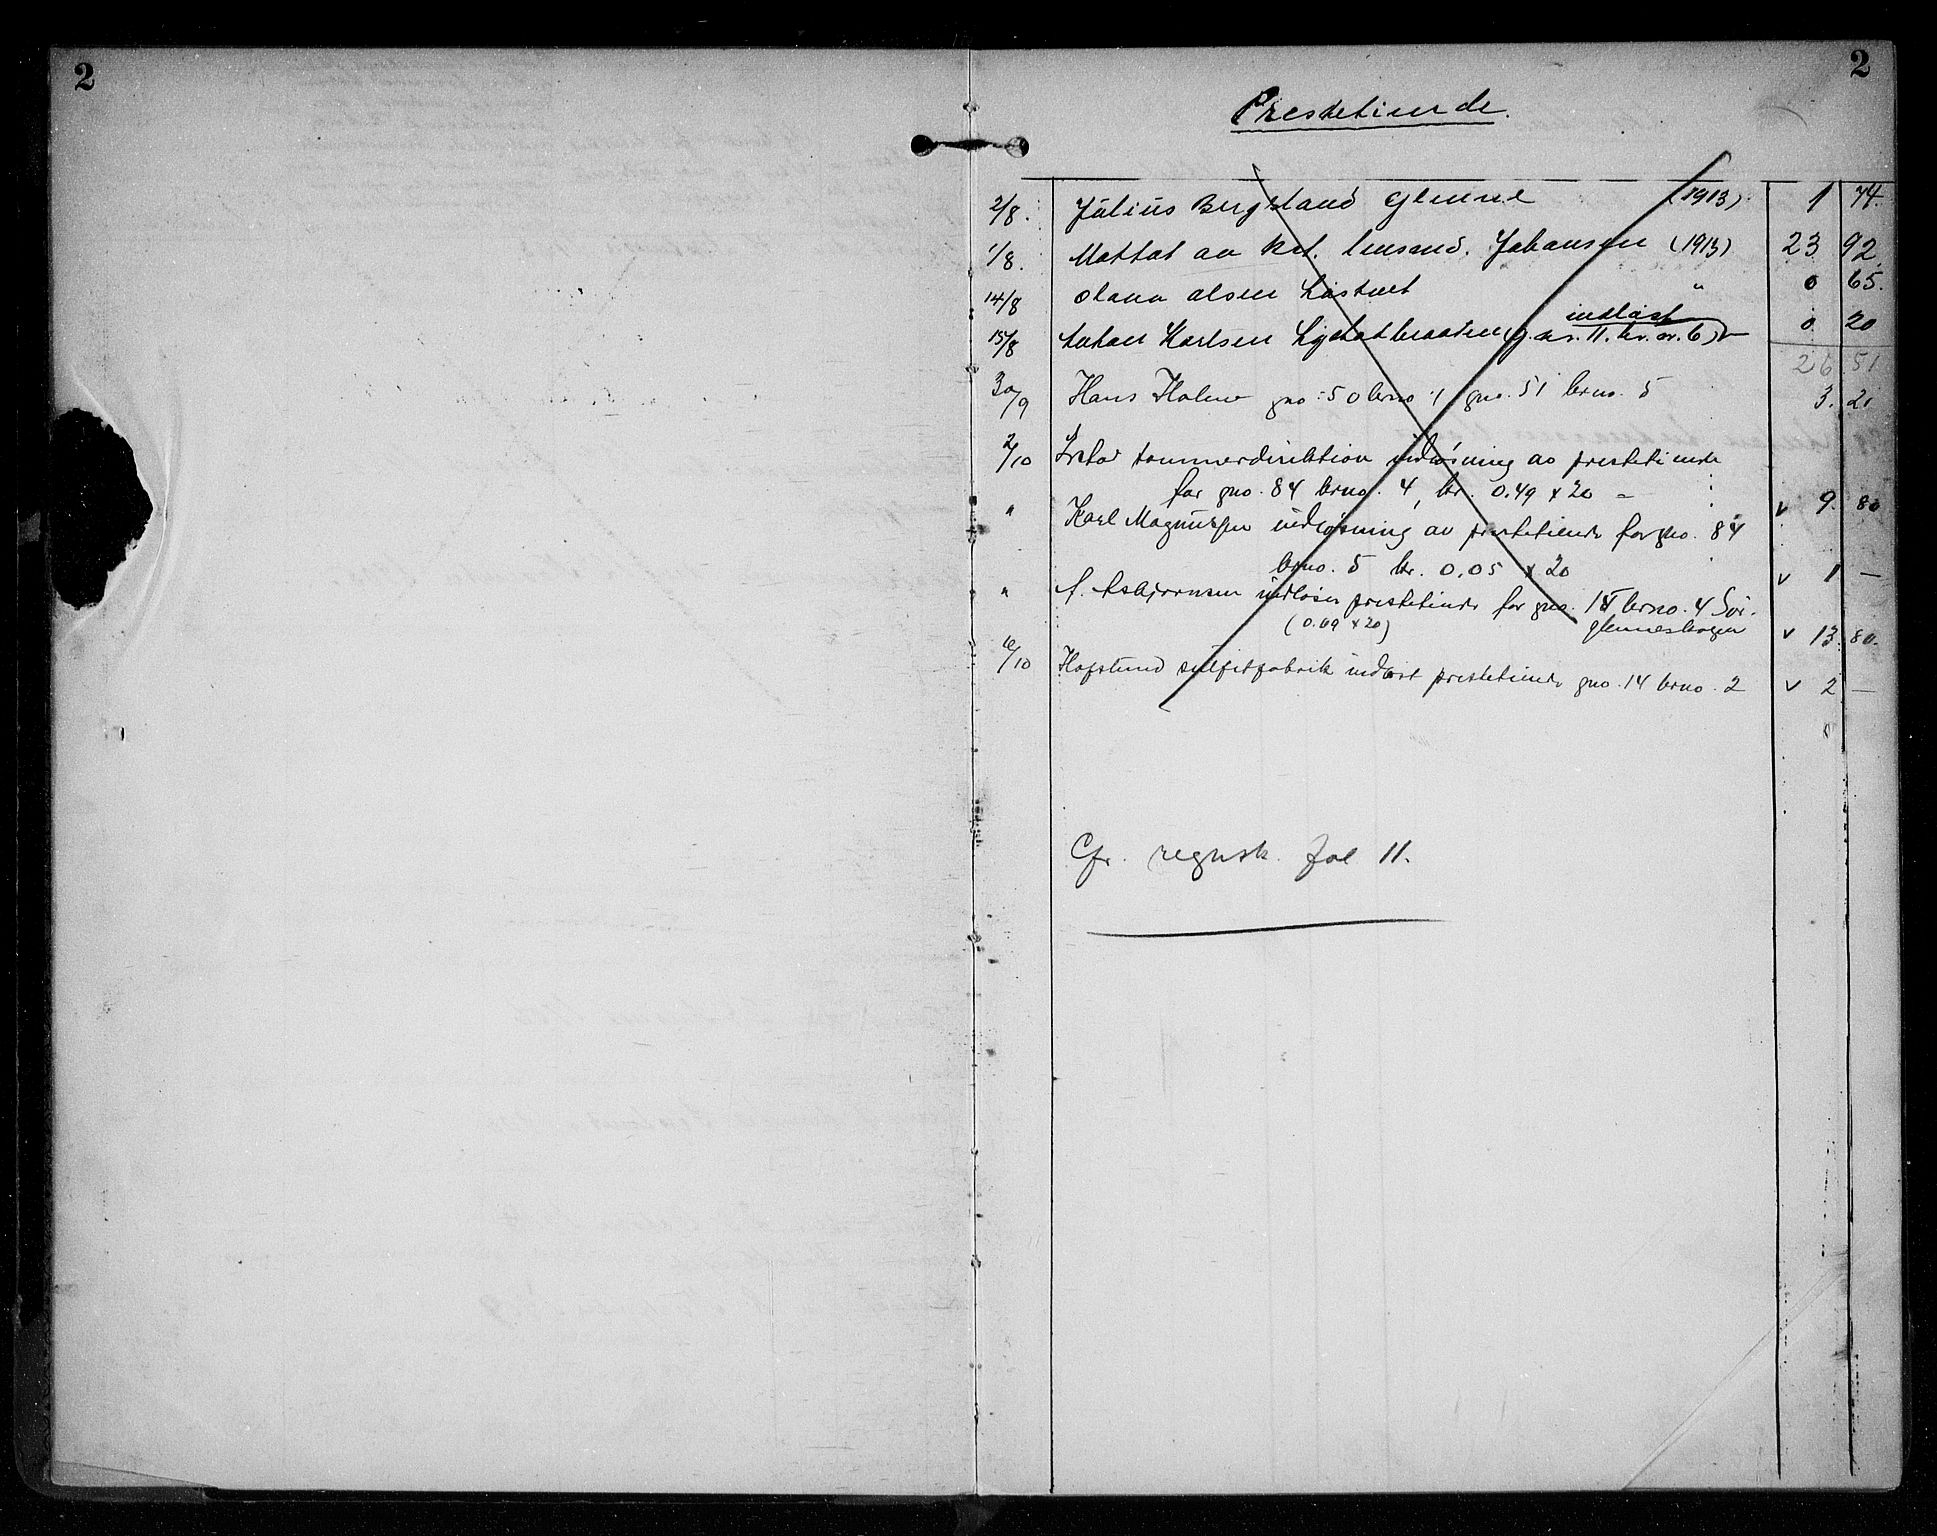 2
2
Prestetiende.
2/8. Julius Bergland Glenne (1913) 1 74.
1/8. Mottat av kst. lensmd. Johansen (1913) 23 92.
14/8 Olava Olsen " 0 65.
indløst
15/8 Anton Karlsen (g.nr. 11. br.nr. 6) 0. 20
26 51
30/9 Hans Holm gno. 50 brno. 1 gno. 51 brno. 5 3. 21
2/10 tømmerdirektion indløsning av prestetiende
for gno. 84 brno. 4, kr. 0.49 x 20 = v 9. 80
" Karl Magnussen indløsning av prestetiende for gno. 84
brno. 5 kr. 0.05 x 20 v 1 —
" A. Asbjørnsen indløser prestetiende for gno. 15 brno. 4 Sør-
(0.69 x 20) glenneskogen v 13. 80.
6/10 Hafslund sulfitfabrik indløst prestetiende gno. 14 brno. 2 v 2 —
Cfr. regnsk. fol 11.